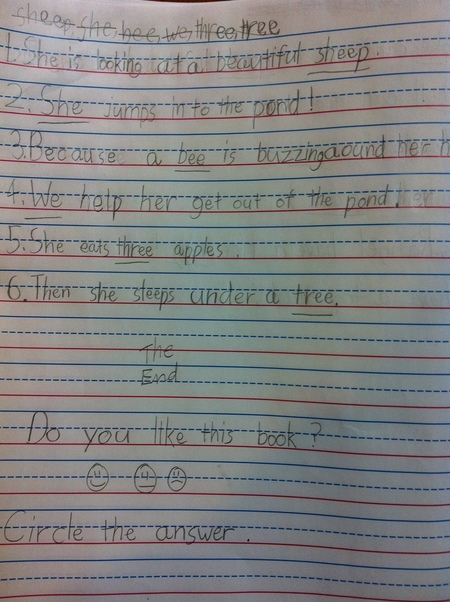 sheep, she, bee, we, three, tree
1. She is looking at a beautiful sheep.
2. She jumps in to the pond!
3. Because a bee is buzzing aound her h
4. We help her get out of the pond.
5. She eats three apples.
6. Then she sleeps under a tree.
The
End
Do you like this book?
Circle the answer.